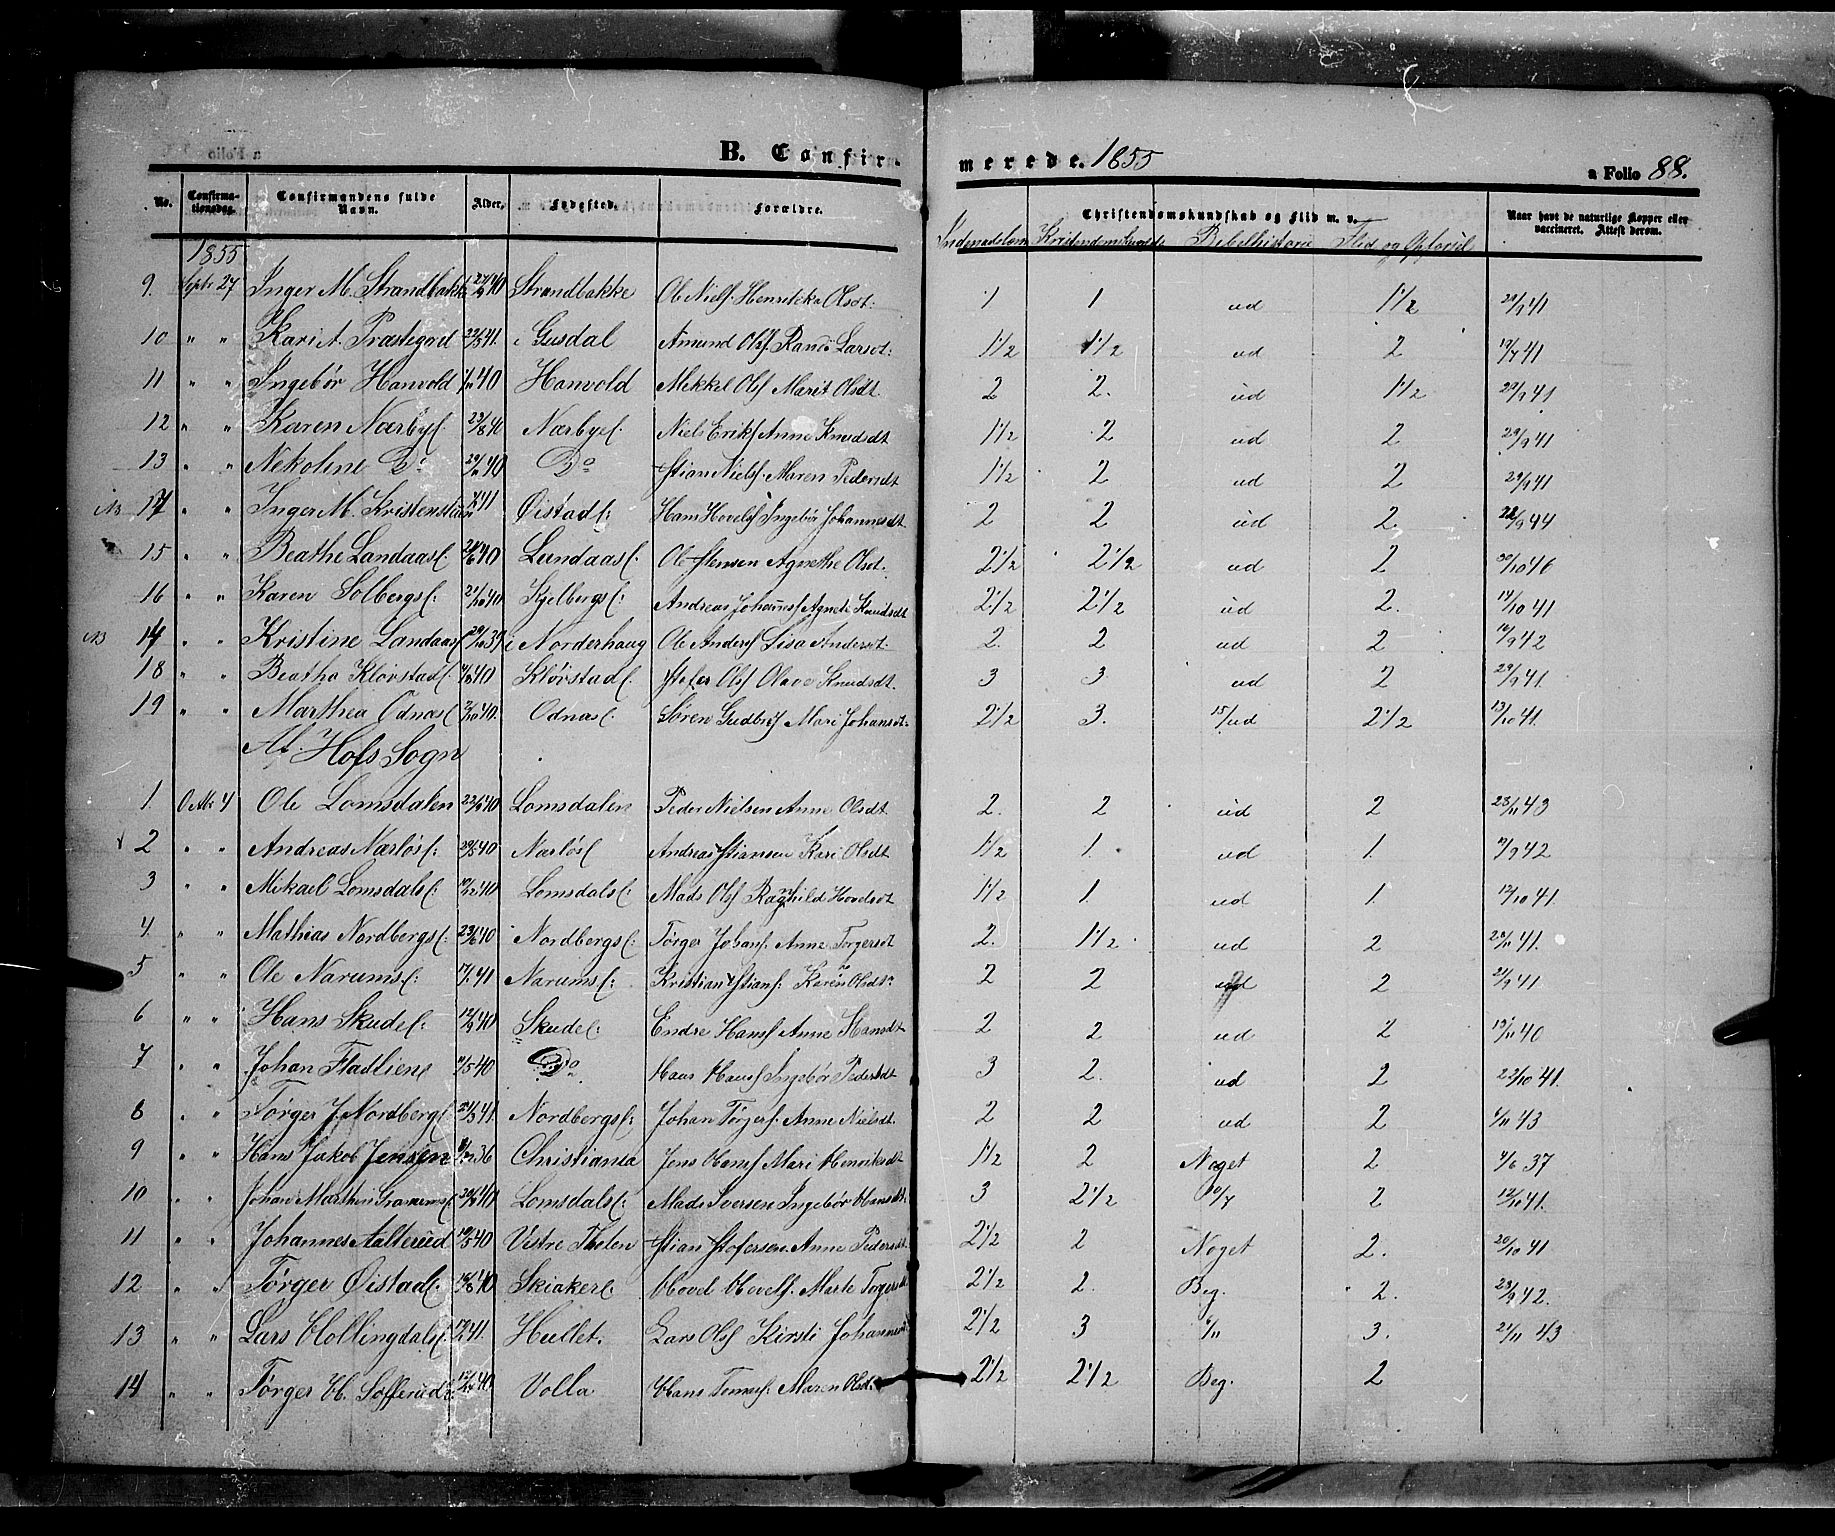 B. Confir-
merede. 1855
a Folio 88.
No. Confirma-tionsdag. Confirmandens fulde Navn. Alder. Fødested. Forældre. Christendomskundskab og Flid m. v. Naar havt de naturlige Kopper eller vaccineret. Attest derom.
Bibelhistorie Flid og
1855
9. Septr 27 Inger M. Strandbakke 40 Strandbakke Ole Niels. Olsdt. 1 1 ud 1 1/2 29/9 41
10 " " Kari A. Præstegord 22/5 41. i Gusdal Amund Ols. Larsdt. 1 1/2 1 1/2 ud 2 19/7 41
11 " " Ingebør Hanvold 40 Hanvold Mikkel Ols. Marit Olsdt. 2 2. ud 1 1/2 29/9 41
12 " " Karen Nærbye. 23/8 40 Nærbye. Niels Eriks. Anne Knudsdt 1 1/2 2 ud 2 29/9 41
13 " " Nekoline Do 40 Do Stian Niels. Maren Pedersdt 1 1/2 2 ud 2 29/9 41
NB 14 " " Inger M. 41 Øistade: Hans Hovels. Ingebør Johannesdt 2 2 ud 2. 9 44
15 " " Beathe Landaase 40 Landaase. Ole Stensen Agnethe Olsdt. 2 1/2 2 1/2 ud 2 30/10 46
16 " " Karen Solbergs: 40 Kjelbergs: Andreas Johans. Agnete Knudsdt 2 1/2 2 1/2 ud 2. 19/10 41
NB 17 " " Kristine Landaase 39 i Norderhaug Ole Anders. Lisa Andersdt. 2. 2 ud 2 9 42
18 " " Beatha Klovstade. 40 Klovstade. Stefer Ols. Olave Knudsdt. 3 3 ud 2 29/9 41.
19 " " Marthea Odnæs. 40. Odnæs. Søren Gudbr. Mari Johansdt. 2 1/2 3. ud 2 1/2 13/10 41.
Af Hofs Sogn
1. Octbr 4 Ole Lomsdalen 40 Lomsdalen Peder Nielsen Anne Olsdt 2. 2 ud 2 23/11 43
2 " " Andreas Nærløs: 40 Nærløs Andreas Stiansen Kari Olsdt 1 1/2 1. ud 1. 9 42
3 " " Mikael Lomsdals: 40 Lomsdals: Mads Ols. Ragnhild Hovelsdt 1 1/2 1. ud 1. 12/10 41.
4. " " Mathias Nordbergs: 23/6 40 Nordbergs: Tørger Johans. Anne Torgersdt 2. 1 1/2 ud 2 11 41.
5 " " Ole Narums: 41 Narums: Kristian Stians. Karen Olsdt. 2 2 ud 2 9 41.
6 " " Hans Skude: 12/9 40 Skude: Endre Hans. Anne Hansdt 2 2 ud 2 11 40
7 " " Johan Fladlien 5 40 Do Hans Hans. Ingebør Pedersdt 3 2. ud 2 22/10 41.
8 " " Tørger J. Nordberg 3 41. Nordbergs: Johan Tørgers. Anne Nielsdt. 2 2 ud 2 11 43
9 " " Hans Jakob Jensen 36 Christiania Jens Hans. Mari Henriksdt 1 1/2 2 Noget 2 4/6 37
10 " " Johan Marthin 40 Lomsdals: Mads Iversen Ingebør Hansdt. 3 2 1/2 2 12/10 41.
11 " " Johannes Aalterud 40 Vestre Thelen Stian Stofersen Anne Pedersdt 2 1/2 2 Noget 2. 20/10 41
12 " " Tørger Øistade. 40 Skiaker. Hovel Hovels. Marte Togersdt 2 1/2 2. Beg. 2. 23/9 42.
13 " " Lars Hollingdals: 41. Hullet. Lars Ols. Kirsti 2 1/2 3 3. 11 43
14 " " Tørger H. Sofferud 40 Volla Hans Maren Olsdt. 2 1/2 2 1/2 Beg. 2